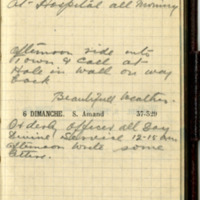 At Hospital all Morning
Afternoon ride into
Town & Call at
Hole in wall on way
back
Beautifull Weather.
6 DIMANCHE. S. Amand 37-329
Orderly Officer all Day
Divine Service 12-15 pm
Afternoon Write some
letters.